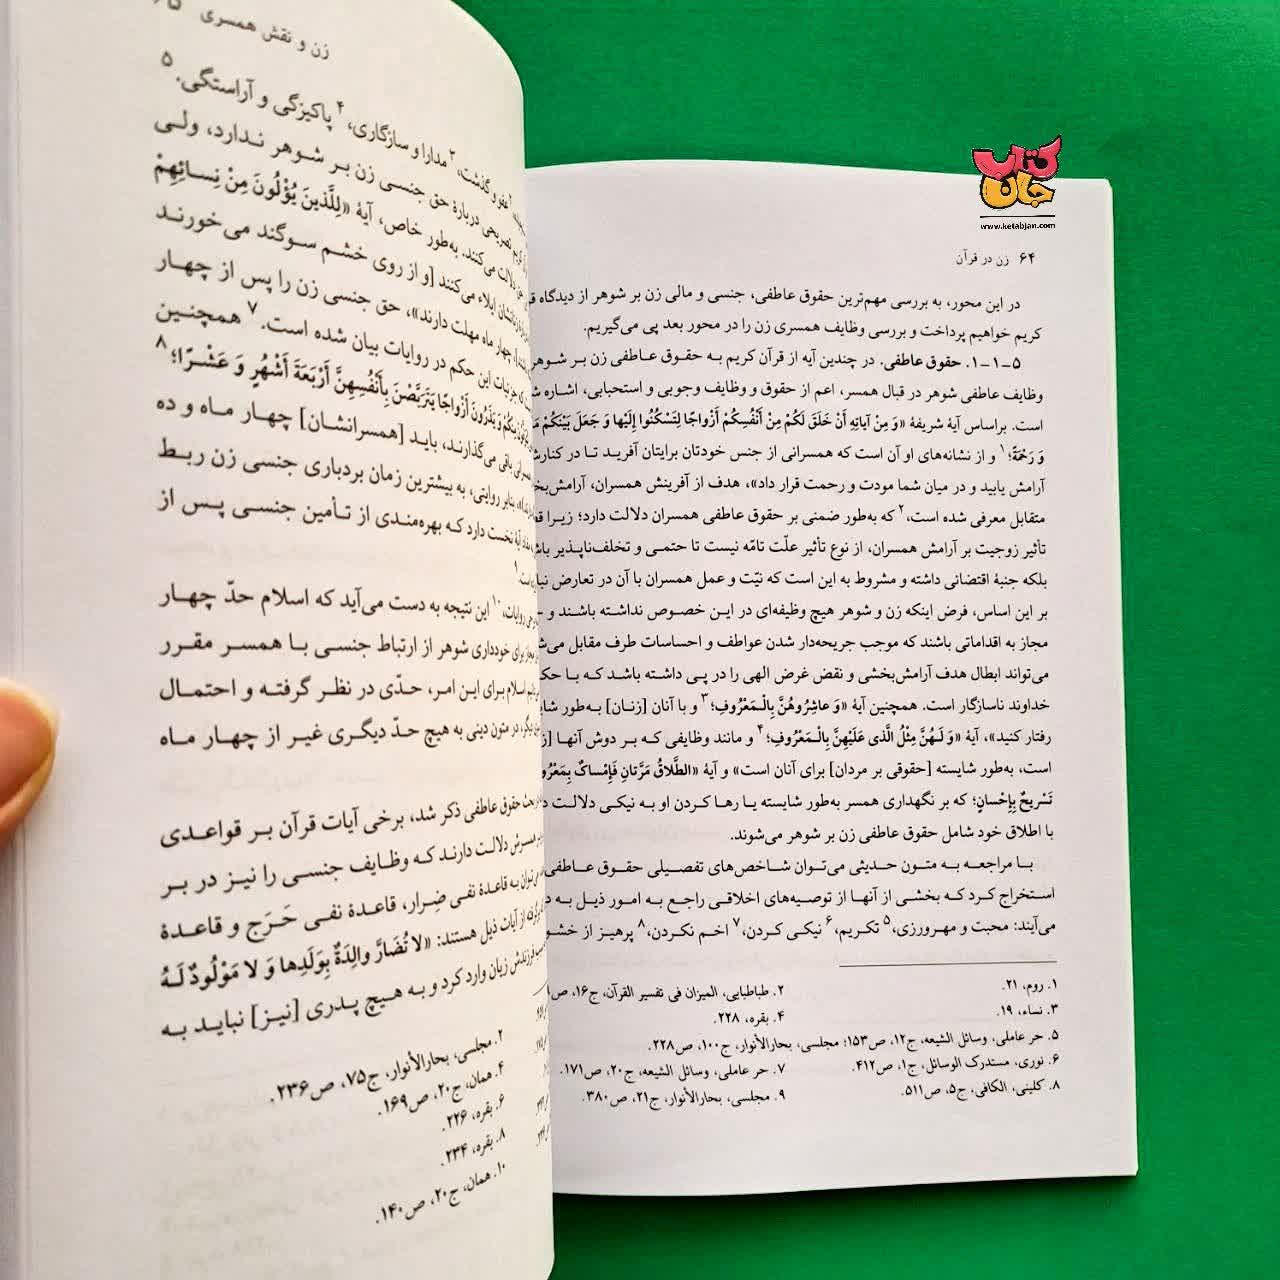 کتاب
جان
www.ketabjan.com
۶۴ زن در قرآن
در این محور، به بررسی مهم‌ترین حقوق عاطفی، جنسی و مالی زن بر شوهر از دیدگاه
کریم خواهیم پرداخت و بررسی وظایف همسری زن را در محور بعد پی می‌گیریم.
۵-۱-۱. حقوق عاطفی. در چندین آیه از قرآن کریم به حقوق عاطفی زن بر شوهر
وظایف عاطفی شوهر در قبال همسر، اعم از حقوق و وظایف وجوبی و استحبابی، اشاره
است. براساس آیهٔ شریفهٔ «وَ مِنْ آیاتِهِ أَنْ خَلَقَ لَکُمْ مِنْ أَنْفُسِکُمْ أَزْواجًا لِتَسْکُنُوا إِلَیْها وَ جَعَلَ بَیْنَکُمْ
وَ رَحْمَةً؛۱ و از نشانه‌های او آن است که همسرانی از جنس خودتان برایتان آفرید تا در کنارش
آرامش یابید و در میان شما مودت و رحمت قرار داد»، هدف از آفرینش همسران، آرامش‌بخ
متقابل معرفی شده است،۲ که به‌طور ضمنی بر حقوق عاطفی همسران دلالت دارد؛ زیرا
تأثیر زوجیت بر آرامش همسران، از نوع تأثیر علّت تامّه نیست تا حتمی و تخلف‌ناپذیر
بلکه جنبهٔ اقتضائی داشته و مشروط به این است که نیّت و عمل همسران با آن در تعارض
بر این اساس، فرض اینکه زن و شوهر هیچ وظیفه‌ای در این خصوص نداشته باشند و
مجاز به اقداماتی باشند که موجب جریحه‌دار شدن عواطف و احساسات طرف مقابل
می‌تواند ابطال هدف آرامش‌بخشی و نقض غرض الهی را در پی داشته باشد که با
خداوند ناسازگار است. همچنین آیهٔ «وَ عاشِرُوهُنَّ بِالْمَعْرُوفِ؛۳ و با آنان [زنان] به‌طور
رفتار کنید»، آیهٔ «وَ لَهُنَّ مِثْلُ الَّذی عَلَیْهِنَّ بِالْمَعْرُوفِ؛۴ و مانند وظایفی که بر دوش آنها
است، به‌طور شایسته [حقوقی بر مردان] برای آنان است» و آیهٔ «الطَّلاقُ مَرَّتانِ فَإِمْساکٌ
تَسْریحٌ بِإِحْسانٍ؛ که بر نگهداری همسر به‌طور شایسته یا رها کردن او به نیکی دلالت
با اطلاق خود شامل حقوق عاطفی زن بر شوهر می‌شوند.
با مراجعه به متون حدیثی می‌توان شاخص‌های تفصیلی حقوق عاطفی
استخراج کرد که بخشی از آنها از توصیه‌های اخلاقی راجع به امور ذیل به
می‌آیند: محبت و مهرورزی،۵ تکریم،۶ نیکی کردن،۷ اخم نکردن،۸ پرهیز از
۱. روم، ۲۱. ۲. طباطبایی، المیزان فی تفسیر القرآن، ج۱۶،
۳. نساء، ۱۹. ۴. بقره، ۲۲۸.
۵. حر عاملی، وسائل الشیعه، ج۱۲، ص۱۵۳؛ مجلسی، بحارالأنوار، ج۱۰۰، ص۲۲۸.
۶. نوری، مستدرک الوسائل، ج۱، ص۴۱۲. ۷. حر عاملی، وسائل الشیعه، ج۲۰، ص۱۷۱.
۸. کلینی، الکافی، ج۵، ص۵۱۱. ۹. مجلسی، بحارالأنوار، ج۲۱، ص۳۸۰.
زن و نقش همسری
عفو و گذشت،۳ مدارا و سازگاری،۴ پاکیزگی و آراستگی.۵
تصریحی دربارهٔ حق جنسی زن بر شوهر ندارد، ولی
دلالت می‌کنند. به‌طور خاص، آیهٔ «لِلَّذینَ یُؤْلُونَ مِنْ نِسائِهِمْ
زنانشان ایلاء می‌کنند [و از روی خشم سوگند می‌خورند
چهار ماه مهلت دارند»، حق جنسی زن را پس از چهار
که جزئیات این حکم در روایات بیان شده است.۷ همچنین
وَ یَذَرُونَ أَزْواجًا یَتَرَبَّصْنَ بِأَنْفُسِهِنَّ أَرْبَعَةَ أَشْهُرٍ وَ عَشْرًا؛۸
باقی می‌گذارند، باید [همسرانشان] چهار ماه و ده
بنابر روایتی، به بیشترین زمان بردباری جنسی زن ربط
آیهٔ نخست دارد که بهره‌مندی از تأمین جنسی پس از
است.۹
روایات،۱۰ این نتیجه به دست می‌آید که اسلام حدّ چهار
مجاز برای خودداری شوهر از ارتباط جنسی با همسر مقرر
اسلام برای این امر، حدّی در نظر گرفته و احتمال
دیگر، در متون دینی به هیچ حدّ دیگری غیر از چهار ماه
بحث حقوق عاطفی ذکر شد، برخی آیات قرآن بر قواعدی
همسرش دلالت دارند که وظایف جنسی را نیز در بر
می‌توان به قاعدهٔ نفی ضِرار، قاعدهٔ نفی حَرَج و قاعدهٔ
از آیات ذیل هستند: «لا تُضَارَّ والِدَةٌ بِوَلَدِها وَ لا مَوْلُودٌ لَهُ
فرزندش زیان وارد کرد و به هیچ پدری [نیز] نباید به
۲. مجلسی، بحارالأنوار، ج۷۵، ص۲۳۶.
۴. همان، ج۲۰، ص۱۶۹.
۶. بقره، ۲۲۶.
۸. بقره، ۲۳۴.
۱۰. همان، ج۲۰، ص۱۴۰.